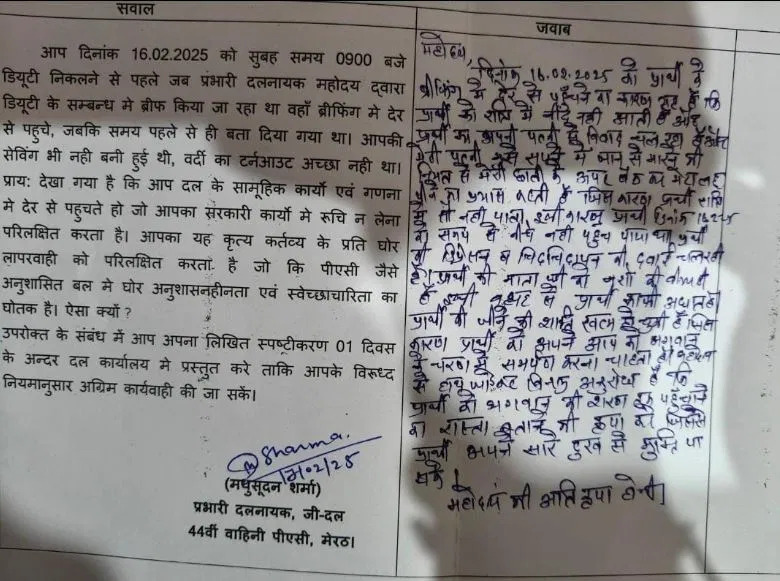 सवाल
आप दिनांक 16.02.2025 को सुबह समय 0900 बजे
डियूटी निकलने से पहले जब प्रभारी दलनायक महोदय द्वारा
डियूटी के सम्बन्ध मे ब्रीफ किया जा रहा था वहाँ ब्रीफिंग मे देर
से पहुचे, जबकि समय पहले से ही बता दिया गया था। आपकी
सेविंग भी नही बनी हुई थी, वर्दी का टर्नआउट अच्छा नही था।
प्राय: देखा गया है कि आप दल के सामूहिक कार्यो एवं गणना
मे देर से पहुचते हो जो आपका सरकारी कार्यो मे रूचि न लेना
परिलक्षित करता है। आपका यह कृत्य कर्तव्य के प्रति घोर
लापरवाही को परिलक्षित करता है जो कि पीएसी जैसे
अनुशासित बल मे घोर अनुशासनहीनता एवं स्वेच्छाचारिता का
घोतक है। ऐसा क्यों ?
उपरोक्त के संबंध में आप अपना लिखित स्पष्टीकरण 01 दिवस
के अन्दर दल कार्यालय मे प्रस्तुत करे ताकि आपके विरूध्द
नियमानुसार अग्रिम कार्यवाही की जा सकें।
Sharma
(मधुसूदन शर्मा)
प्रभारी दलनायक, जी-दल
44वीं वाहिनी पीएसी, मेरठ।
जवाब
महोदय,
दिनांक 16.02.2025 को प्रार्थी के
ब्रीफिंग में देर से पहुँचने का कारण यह है कि
प्रार्थी को रात्रि में नींद नही आती है और
प्रार्थी का अपनी पत्नी से विवाद चल रहा है और
मेरी पत्नी मुझे सपने में जान से मारने की
नियत से मेरी छाती के ऊपर बैठ कर मेरा लहू
पीने का प्रयास करती है जिस कारण प्रार्थी रात्रि
में सो नही पाता, इसी कारण प्रार्थी दिनांक 16-2-25
को समय से नीचे नही पहुच पाया था प्रार्थी
की डिप्रेशन व चिड़चिड़ापन की दवाई चल रही
है। प्रार्थी की माता जी को नशो की बीमारी
है इसकी वजह से प्रार्थी काफी
प्रार्थी की जीने की खत्म हो चुकी है जिस
कारण प्रार्थी को अपने आप को भगवान
के चरणो मे समर्पण करना चाहता है
अनुरोध है कि
प्रार्थी को भगवान की शरण मे पहुँचाने
का रास्ता बताने की कृपा करे जिससे
प्रार्थी अपने सारे दुख से मुक्ति पा
सके।
महोदय की अति कृपा होगी।